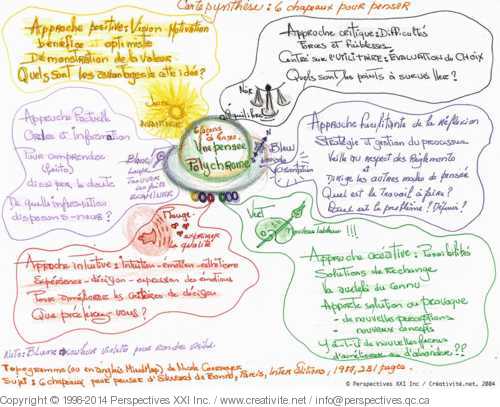 Carte synthèse: 6 chapeaux pour penser
Approche positive: Vision-Motivation
bénéfice et optimiste
Démonstration de la valeur
Quels sont les avantages de cette idée?
Jaune
Approche critique: Difficultés
Forces et faiblesses
Centré sur l'UTILITAIRE: ÉVALUATION du CHOIX
Quels sont les points à surveiller?
Noir
Équilibre
6 façons
de penser
Une pensée
Polychrome
Approche Factuelle
Ordre et Information
Pour comprendre
(faits)
dissiper le doute
De quelle information
disposons-nous?
Blanc
Bleu
Approche facilitante de la Réflexion
Stratégie et gestion du processus
Veille au respect des Règlements
et
Diriger les autres modes de pensée
Quel est le travail à faire?
Quel est le problème? Définir?
Rouge
exprimer
la qualité
Vert
!!!
Approche intuitive: Intuition-émotion-esthétisme
Expérience-décision-expression des émotions
Pour améliorer les critères de décision
Que préférez-vous?
Approche créative: Possibilités
Solutions de Rechange
Au delà du connu
Apporte solution ou provoque
- de nouvelles perceptions
- nouveaux concepts
Y a-t-il de nouvelles façons
??
Nota: Blanc couleur violete pour rendre visible
Topogramme (ou en anglais MindMap) de Nicole
Sujet: 6 chapeaux pour penser d'Edward de Bono, Paris, Inter Éditions, 1987, 231 pages.
© Perspectives XXI Inc. / Créativité.net, 2004
Copyright © 1996-2014 Perspectives XXI Inc. / www.perspectives.qc.ca